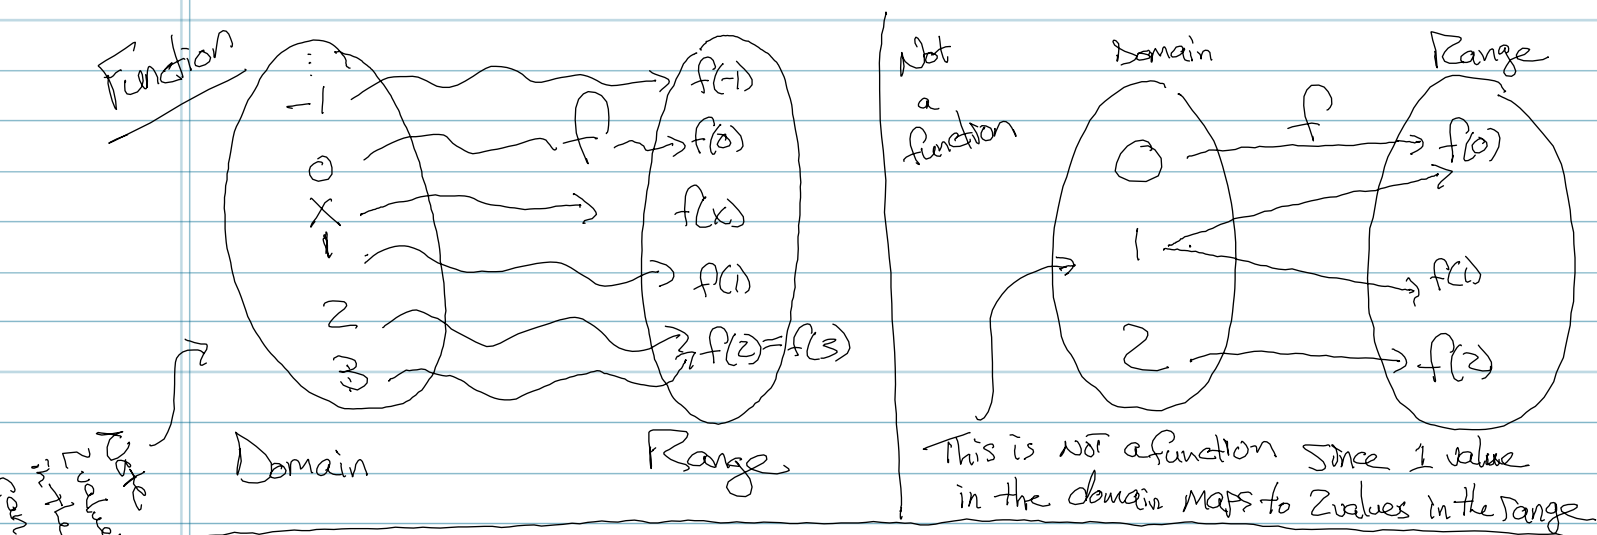 Function
⋮
-1
0
x
1
2
3
f
f(-1)
f(0)
f(x)
f(1)
f(2)=f(3)
Domain
Range
Not
a
function
Domain
Range
0
1
2
f
f(0)
f(1)
f(2)
This is NOT a function since 1 value
in the domain maps to 2 values in the range